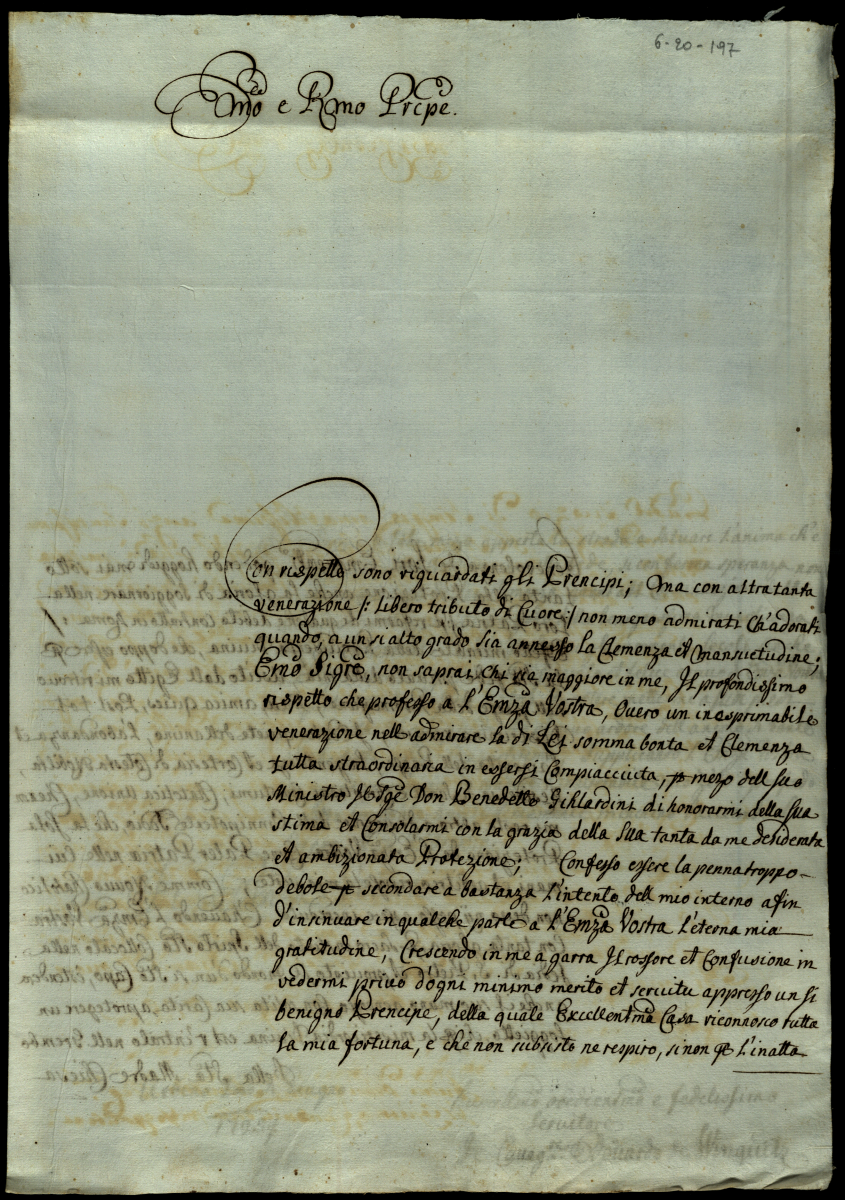 6-20-197
Emo e Rmo Prcpe.
Con rispetto sono riguardati gli Prencipi; Ma con altratanta
venerazione /: libero tributo di Cuore :/ non meno admirati ch'adorati
quando, a un si alto grado sia annesso la Clemenza et Mansuetudine;
Emo Sigre, non saprai chi sia maggiore in me, Il profondissimo
rispetto che professo a l'Emza Vostra, Overo un inesprimabile
venerazione nell admirare la di Lei somma bonta et Clemenza
tutta straordinaria in essersi Compiacciuta, p mezo dell suo
Ministro Il Sge Don Benedetto Gihlardini di honorarmi della sua
stima et Consolarmi con la grazia della Sua tanta da me desiderata
et ambizionata Protezione; Confesso essere la penna troppo
debole p secondare a bastanza l'intento dell mio interno afin
d'insinuare in qualche parte a l'Emza Vostra l'eterna mia
gratitudine, Crescendo in me a garra Il rossore et Confusione in
vedermi privo d'ogni minimo merito et servitu appresso un si
benigno Prencipe, della quale Excellentma Casa riconnosco tutta
la mia fortuna, e che non subsisto ne respiro, sinon p l'inatta